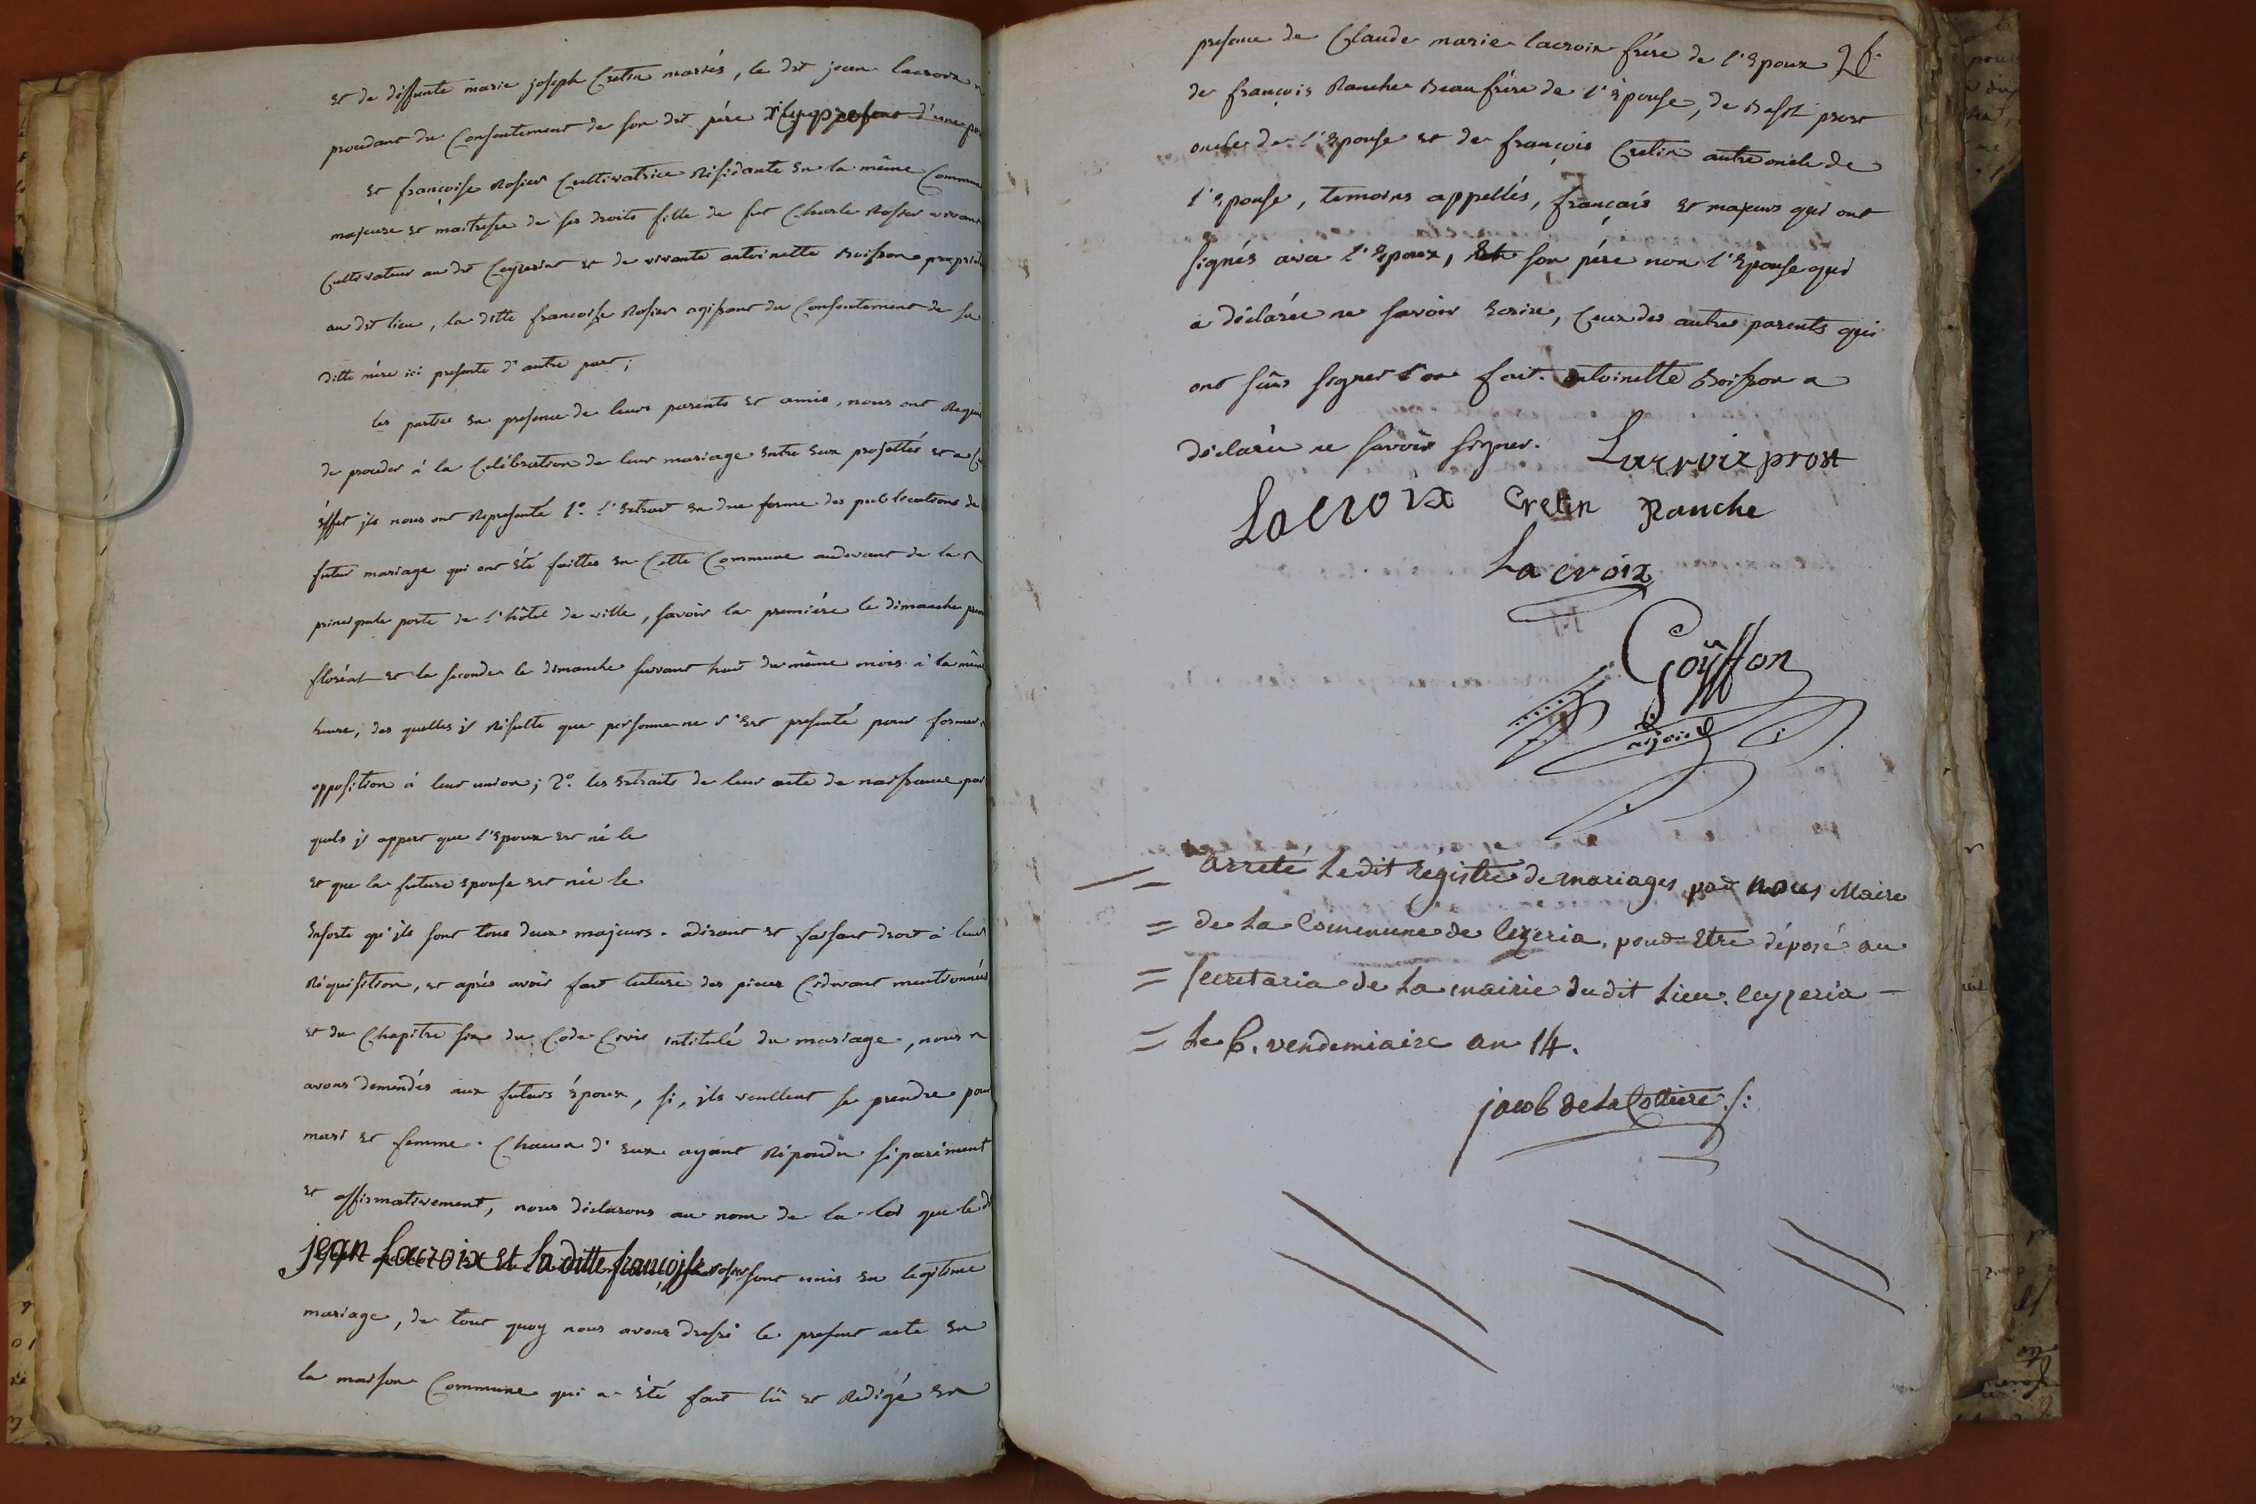 et de diffunte marie joseph Cretin mariés, le dit jean lacroix
procédant du Consentement de son dit père d'une
et françoise Rosier Cultivatrice Résidante en la même Commune
majeure et maitresse de ses droits fille de feu Charle Rosier vivant
Cultivateur au dit Ceyzeriat et de vivante antoinette Boisson
au dit lieu, la ditte francoise Rosier agissant du Consentement de sa
ditte mère ici presente d'autre part;
les parties en presence de leurs parents et amis, nous ont Requis
de proceder à la Célébration de leur mariage entre eux projettés et a
éffet ils nous ont Représenté 1o. l'extrait en due forme des publications de
futur mariage qui ont été faittes en Cette Commune audevant de la
principale porte de l'hôtel de ville, savoir la première le dimanche
floréal et la seconde le dimanche suivant huit du même mois à la même
heure, des quelles il Résulte que personne ne s'est presenté pour former
opposition à leur union; 2o. les extraits de leur acte de naissance par
quels il appert que l'Epoux est né le
et que la future epouse est née le
Ensorte qu'ils sont tous deux majeurs. adirant et faisant droit à leur
Réquisition, et après avoir fait lecture des pieces Cidevant mentionnées
et du Chapitre six du Code Civil intitulé du mariage, nous
avons demendés aux futurs époux, si, ils veullent se prendre pour
mari et femme. Chacun d'eux ayant Répondu séparément
et affirmativement, nous déclarons au nom de la loi que le dt
jean Lacroix et la ditte françoise rosier sont unis en legitime
mariage, de tout quoy nous avons dressé le present acte en
la maison Commune qui a été fait lû et Redigé en
presence de Claude marie lacroix frère de l'Epoux
de françois Ranche Beaufrère de l'épouse, de prost
oncle de l'Epouse et de françois Cretin autre oncle de
l'Epouse, temoins appellés, français et majeurs qui ont
signés avec l'Epoux, et son père non l'Epouse qui
a déclarée ne savoir Ecrire, Ceux des autres parents qui
ont sûs signer l'on fait. antoinette Boisson a
déclarée ne savoir signer. Lacroix prost
Lacroix Cretin Ranche
Lacroix
Goÿffon
adjoint
Arreté Ledit régistre de mariages par nous Maire
= de La Commune de Ceyzeria, pour Etre déposé au
= secretaria de La mairie dudit Lieu. Ceyzeria —
= Le 6. vendemiaire an 14.
jacob de La Cottiere